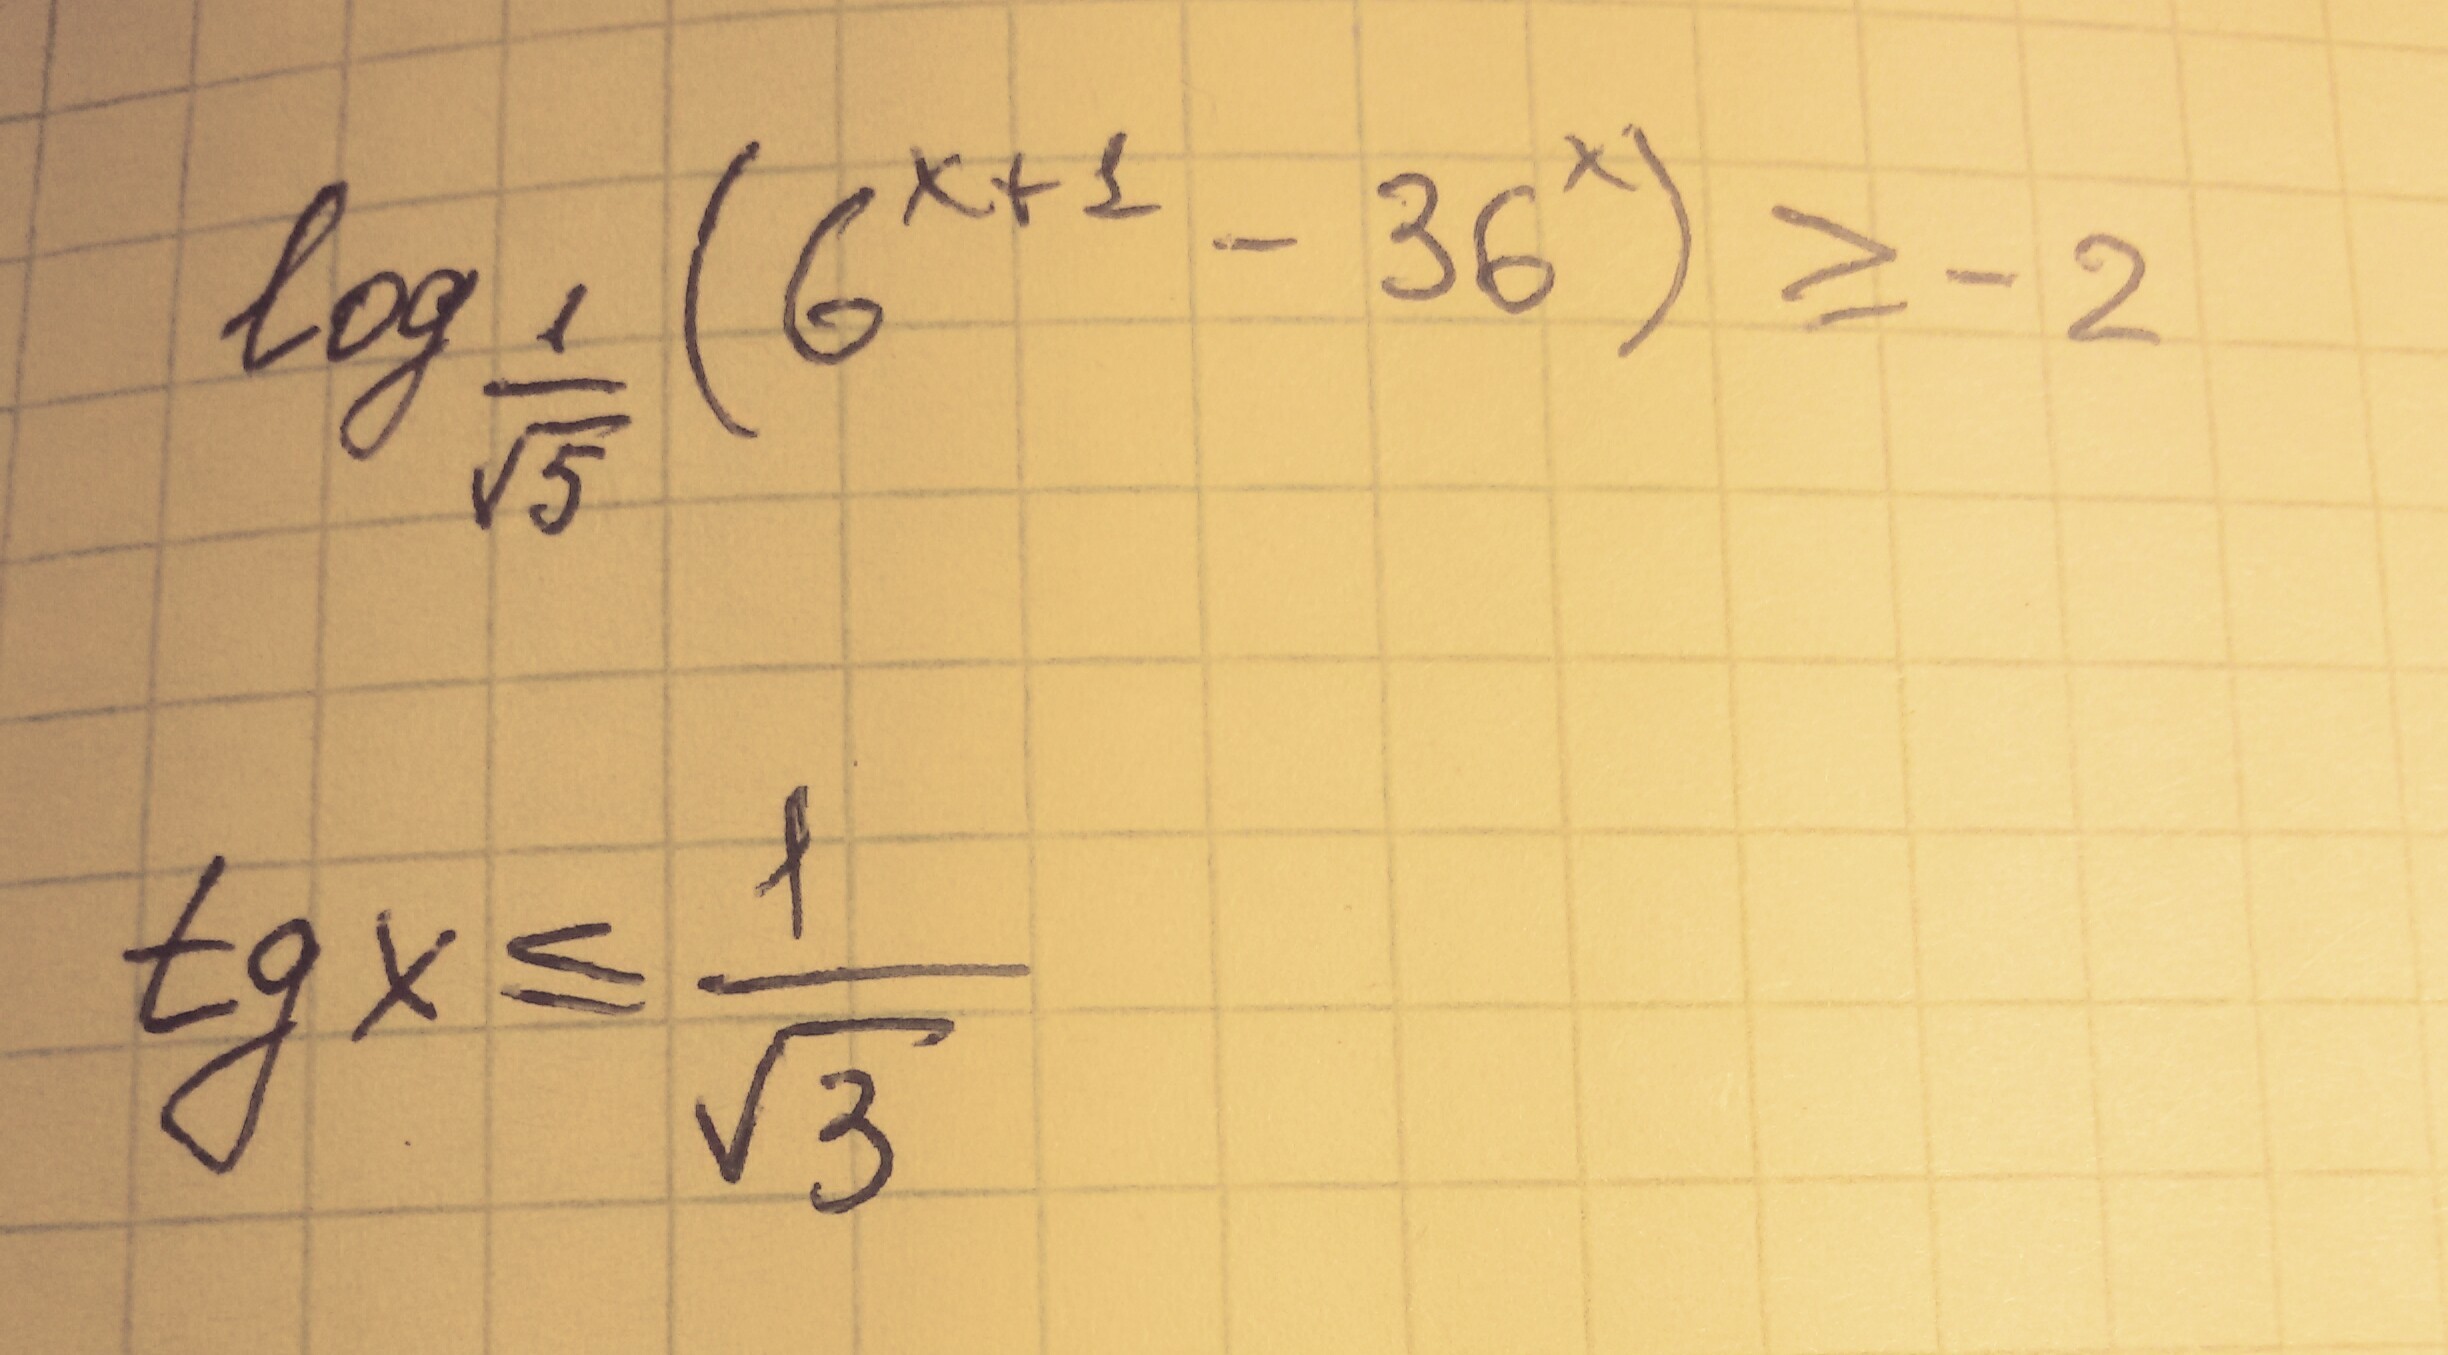 log_{1/√5} (6^{x+1} - 36^x) ≥ -2
tg x ≤ 1/√3